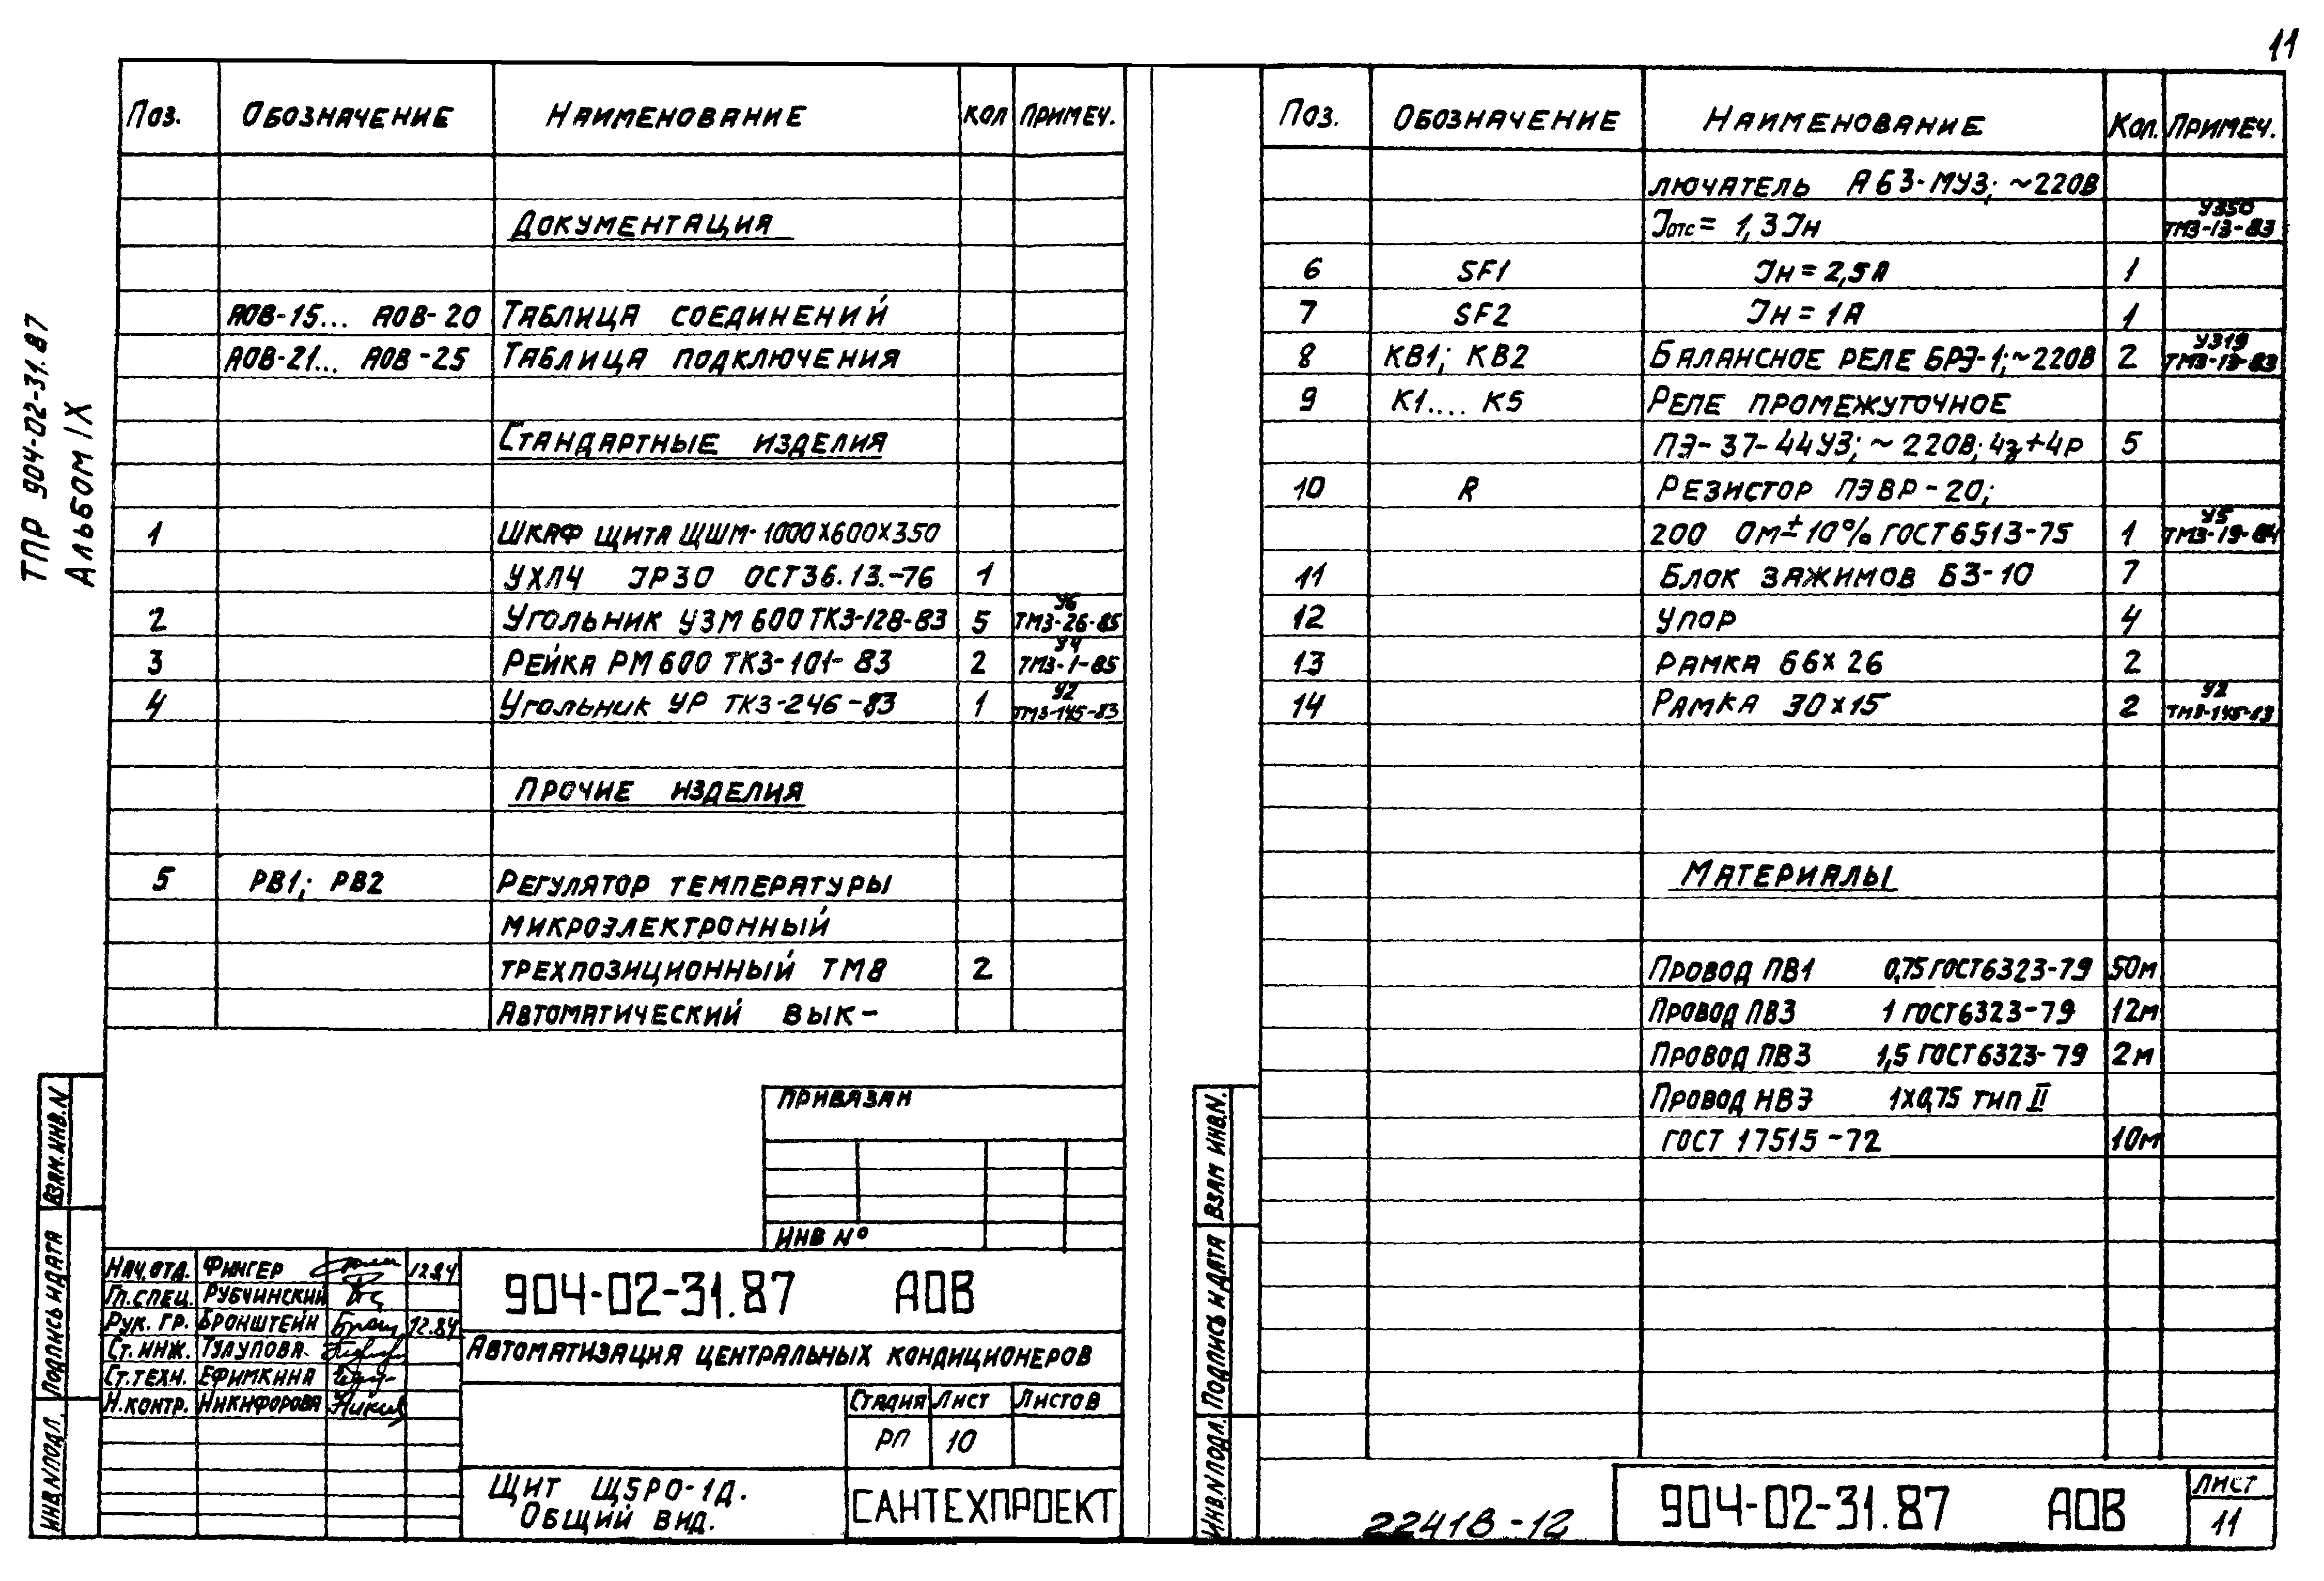 11
ТПР 904-02-31.87
Альбом IX
Поз. Обозначение Наименование Кол Примеч.
Документация
АОВ-15... АОВ-20 Таблица соединений
АОВ-21... АОВ-25 Таблица подключения
Стандартные изделия
1 Шкаф щита ЩШМ-1000х600х350
УХЛ4 IP30 ОСТ36.13.-76 1
2 Угольник УЗМ 600 ТК3-128-83 5 У6 ТМ3-26-85
3 Рейка РМ 600 ТК3-101-83 2 У4 ТМ3-1-85
4 Угольник УР ТК3-246-83 1 У2 ТМ3-145-83
Прочие изделия
5 РВ1; РВ2 Регулятор температуры
микроэлектронный
трехпозиционный ТМ8 2
Автоматический вык-
Привязан
Инв №
Нач.отд. Фингер 12.84
Гл.спец. Рубчинский
Рук. гр. Бронштейн 12.84
Ст. инж. Тулупова
Ст.техн. Ефимкина
Н.контр. Никифорова
904-02-31.87 АОВ
Автоматизация центральных кондиционеров
Стадия Лист Листов
РП 10
Щит Щ5РО-1Д.
Общий вид.
САНТЕХПРОЕКТ
Взам.инв.N
Подпись и дата
Инв.N подл.
Поз. Обозначение Наименование Кол. Примеч.
лючатель А63-МУЗ; ~220В
Iотс = 1,3 Iн У350 ТМ3-13-83
6 SF1 Iн = 2,5А 1
7 SF2 Iн = 1А 1
8 КВ1; КВ2 Балансное реле БРЭ-1; ~220В 2 У319 ТМ3-13-83
9 К1.... К5 Реле промежуточное
ПЭ-37-44У3; ~ 220В; 4з+4р 5
10 R Резистор ПЭВР-20;
200 Ом ± 10% ГОСТ 6513-75 1 У5 ТМ3-19-84
11 Блок зажимов БЗ-10 7
12 Упор 4
13 Рамка 66х26 2
14 Рамка 30х15 2 У2 ТМ3-145-83
Материалы
Провод ПВ1 0,75 ГОСТ6323-79 50м
Провод ПВ3 1 ГОСТ6323-79 12м
Провод ПВ3 1,5 ГОСТ6323-79 2м
Провод НВЭ 1х0,75 тип II
ГОСТ 17515-72 10м
Взам инв.N.
Подпись и дата
Инв.N подл.
22418-12
904-02-31.87 АОВ
Лист
11